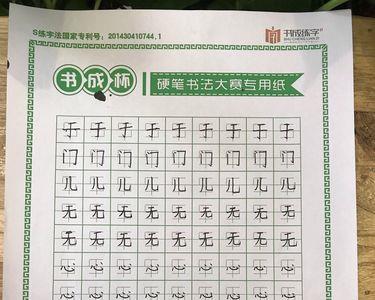 S练字法国家专利号：201430410744.1
书成练字
SHU CHENG LIAN ZI
书成杯 硬笔书法大赛专用纸
于 于 于 于 于 于 于 于
门 门 门 门 门 门 门 门
儿 儿 儿 儿 儿 儿 儿 儿
无 无 无 无 无 无 无 无
无 无 无 无 无 无 无 无
心 心 心 心 心 心 心 心
必 必 必 必 必 必 必 必